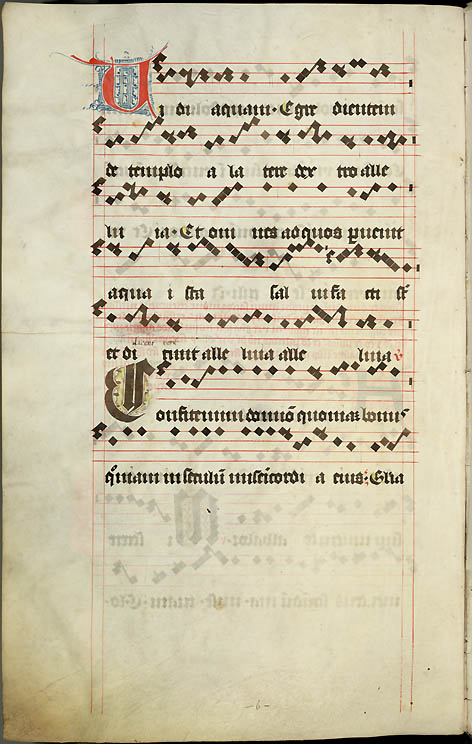 Vi di aquam · Egre dientem
de templo a la tere dex tro alle
lu ia · Et om nes ad quos puenit
aqua i sta sal ui fa cti st
et di cent alle luia alle luia
Confitemini domino quoniam bonus
qm̄am in seculū misericordi a eius : Glīa
-6-